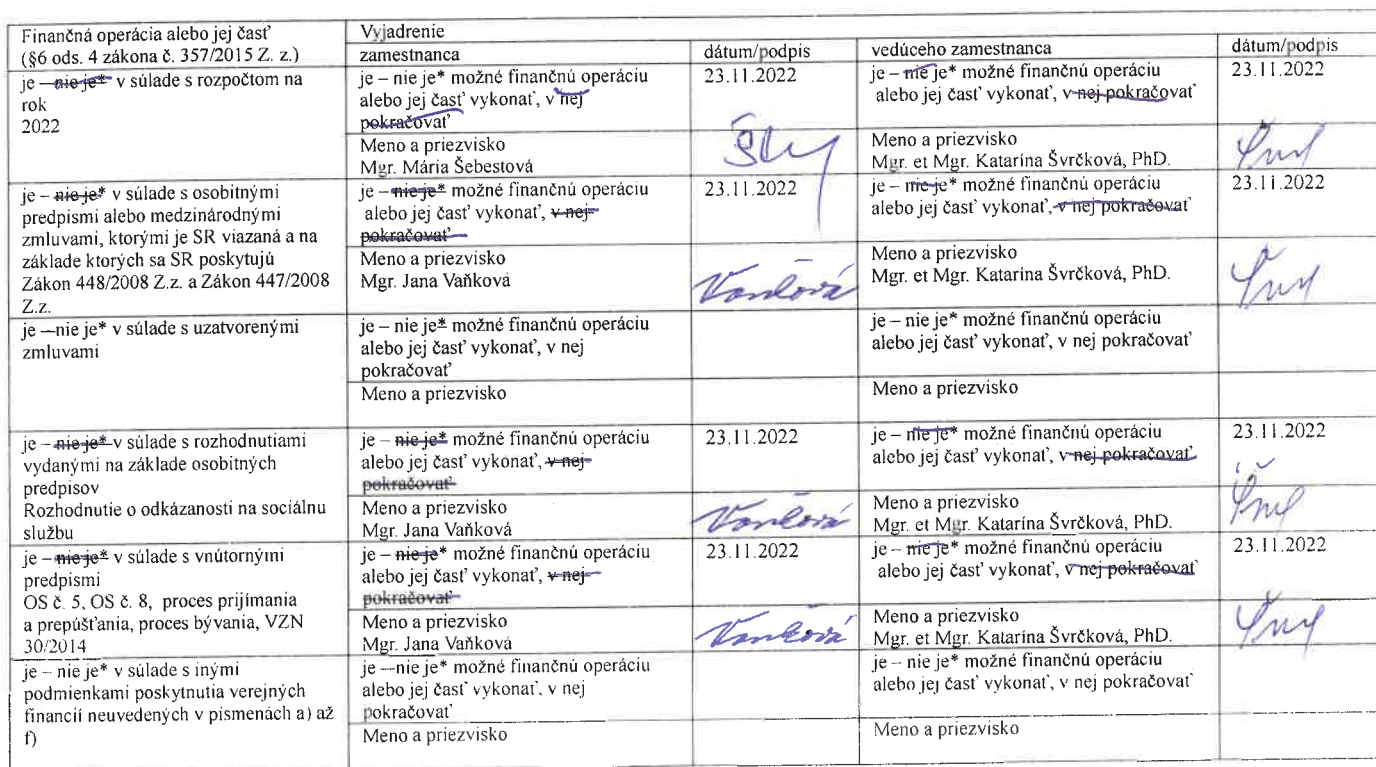 Finančná operácia alebo jej časť
(§6 ods. 4 zákona č. 357/2015 Z. z.)
Vyjadrenie
zamestnanca
dátum/podpis
vedúceho zamestnanca
dátum/podpis
je – nie je* v súlade s rozpočtom na
rok
2022
je – nie je* možné finančnú operáciu
alebo jej časť vykonať, v nej
pokračovať
23.11.2022
je – nie je* možné finančnú operáciu
alebo jej časť vykonať, v nej pokračovať
23.11.2022
Meno a priezvisko
Mgr. Mária Šebestová
Meno a priezvisko
Mgr. et Mgr. Katarína Švrčková, PhD.
je – nie je* v súlade s osobitnými
predpismi alebo medzinárodnými
zmluvami, ktorými je SR viazaná a na
základe ktorých sa SR poskytujú
Zákon 448/2008 Z.z. a Zákon 447/2008
Z.z.
je – nie je* možné finančnú operáciu
alebo jej časť vykonať, v nej
pokračovať
23.11.2022
je – nie je* možné finančnú operáciu
alebo jej časť vykonať, v nej pokračovať
23.11.2022
Meno a priezvisko
Mgr. Jana Vaňková
Vaňková
Meno a priezvisko
Mgr. et Mgr. Katarína Švrčková, PhD.
je –nie je* v súlade s uzatvorenými
zmluvami
je – nie je* možné finančnú operáciu
alebo jej časť vykonať, v nej
pokračovať
je – nie je* možné finančnú operáciu
alebo jej časť vykonať, v nej pokračovať
Meno a priezvisko
Meno a priezvisko
je – nie je* v súlade s rozhodnutiami
vydanými na základe osobitných
predpisov
Rozhodnutie o odkázanosti na sociálnu
službu
je – nie je* možné finančnú operáciu
alebo jej časť vykonať, v nej
pokračovať
23.11.2022
je – nie je* možné finančnú operáciu
alebo jej časť vykonať, v nej pokračovať
23.11.2022
Meno a priezvisko
Mgr. Jana Vaňková
Vaňková
Meno a priezvisko
Mgr. et Mgr. Katarína Švrčková, PhD.
je – nie je* v súlade s vnútornými
predpismi
OS č. 5, OS č. 8, proces prijímania
a prepúšťania, proces bývania, VZN
30/2014
je – nie je* možné finančnú operáciu
alebo jej časť vykonať, v nej
pokračovať
23.11.2022
je – nie je* možné finančnú operáciu
alebo jej časť vykonať, v nej pokračovať
23.11.2022
Meno a priezvisko
Mgr. Jana Vaňková
Vaňková
Meno a priezvisko
Mgr. et Mgr. Katarína Švrčková, PhD.
je – nie je* v súlade s inými
podmienkami poskytnutia verejných
financií neuvedených v písmenách a) až
f)
je –nie je* možné finančnú operáciu
alebo jej časť vykonať, v nej
pokračovať
je – nie je* možné finančnú operáciu
alebo jej časť vykonať, v nej pokračovať
Meno a priezvisko
Meno a priezvisko